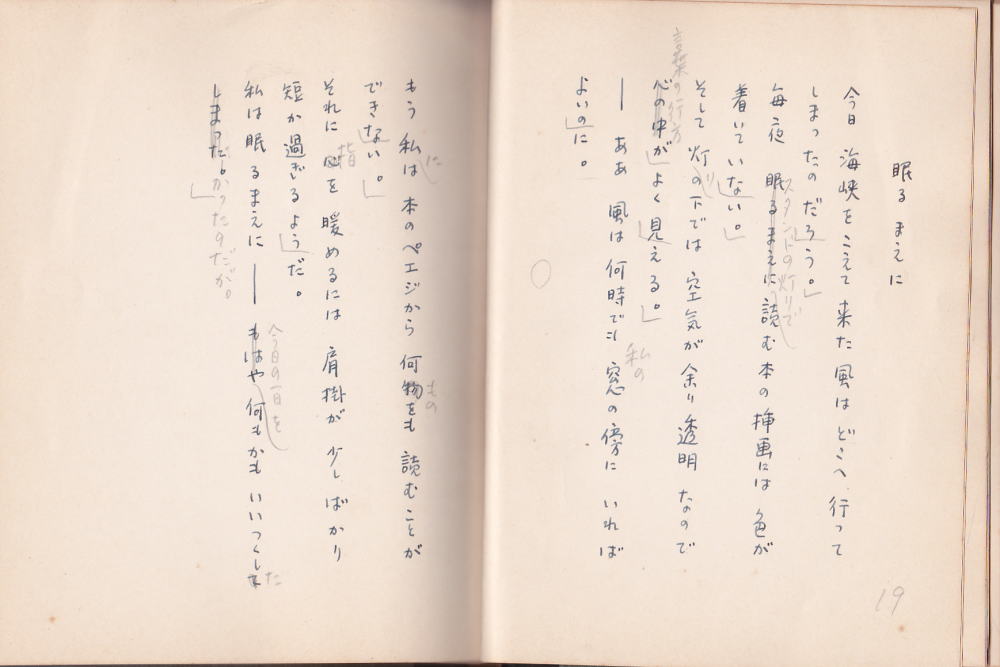 眠るまえに
今日 海峡をこえて 来た風は どこへ 行って
しまったの だろう。
スタンドの灯りで
毎夜 眠るまえに 読む本の 挿画には 色が
着いて いない。
そして 灯りの下では 空気が 余り 透明 なので
言葉の行方
心の中が よく 見える。
私の
── ああ 風は 何時でも 窓の傍に いれば
よいのに。
19
に
もの
もう 私は 本のペエジから 何物をも 読むことが
できない。
指
それに 心を 暖めるには 肩掛が 少しばかり
短か過ぎる ようだ。
今日の一日を
た
私は 眠るまえに ── もはや 何もかも いいつくしま
しまった。
かったのだが。